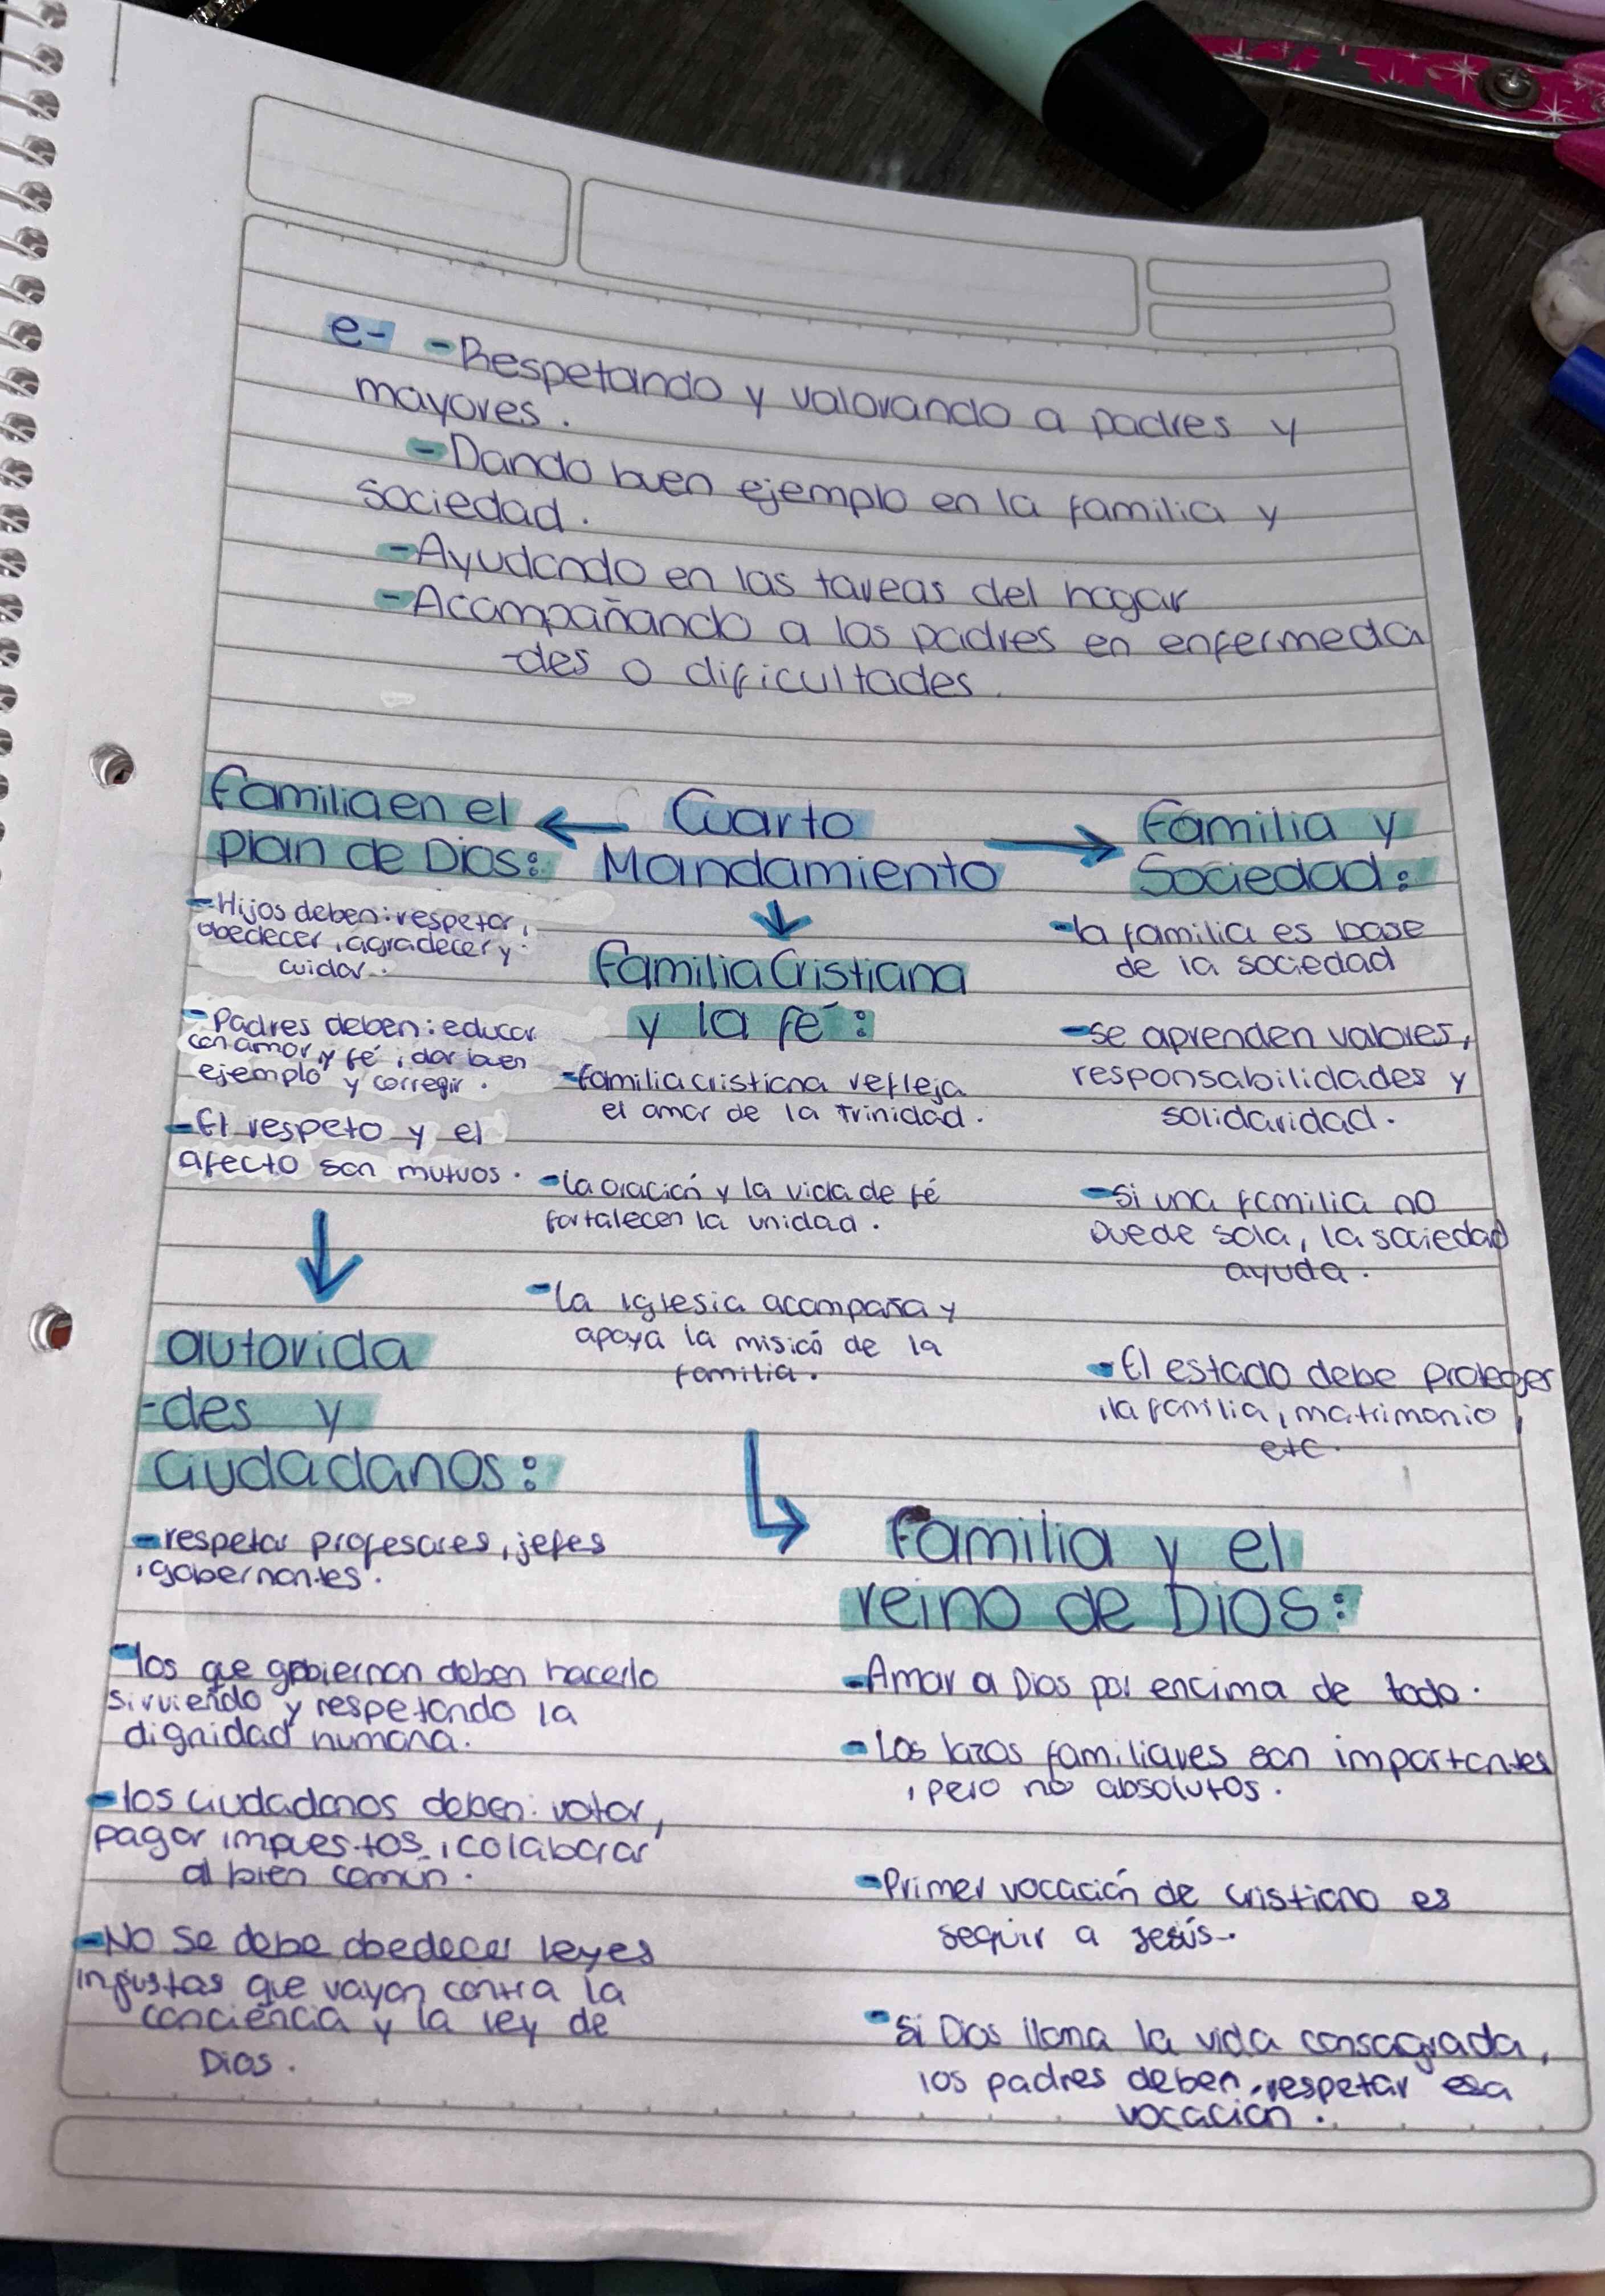 e- -Respetando y valorando a padres y
mayores.
-Dando buen ejemplo en la familia y
sociedad.
-Ayudando en las tareas del hogar
-Acompañando a los padres en enfermeda
-des o dificultades.
Familia en el
plan de Dios:
-Hijos deben: respetar,
obedecer, agradecer y
cuidar.
-Padres deben: educar
con amor y fé, dar buen
ejemplo y corregir.
-El respeto y el
afecto son mutuos.
autorida
-des y
ciudadanos:
-respetar profesores, jefes
, gobernantes.
-los que gobiernan deben hacerlo
sirviendo y respetando la
dignidad humana.
-los ciudadanos deben: votar,
pagar impuestos, colaborar
al bien común.
-No se debe obedecer leyes
injustas que vayan contra la
conciencia y la ley de
Dios.
Cuarto
Mandamiento
Familia Cristiana
y la fé:
-familia cristiana refleja
el amor de la Trinidad.
-la oración y la vida de fé
fortalecen la unidad.
-la iglesia acompaña y
apoya la misión de la
familia.
Familia y
Sociedad:
-la familia es base
de la sociedad
-se aprenden valores,
responsabilidades y
solidaridad.
-Si una familia no
puede sola, la sociedad
ayuda.
-El estado debe proteger
, la familia, matrimonio,
etc.
Familia y el
reino de Dios:
-Amar a Dios por encima de todo.
-Los lazos familiares son importantes
, pero no absolutos.
-Primer vocación de cristiano es
seguir a Jesús.
-Si Dios llama la vida consagrada,
los padres deben respetar esa
vocación.